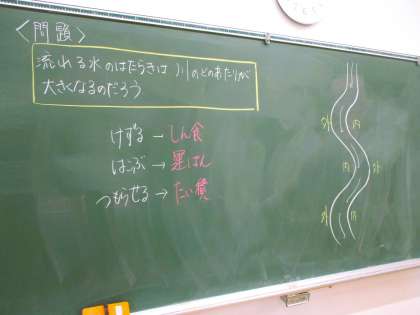 〈問題〉
流れる水のはたらきは川のどのあたりが
大きくなるのだろう
けずる→しん食
はこぶ→運ぱん
つもらせる→たい積
外 内
内 外
外 内